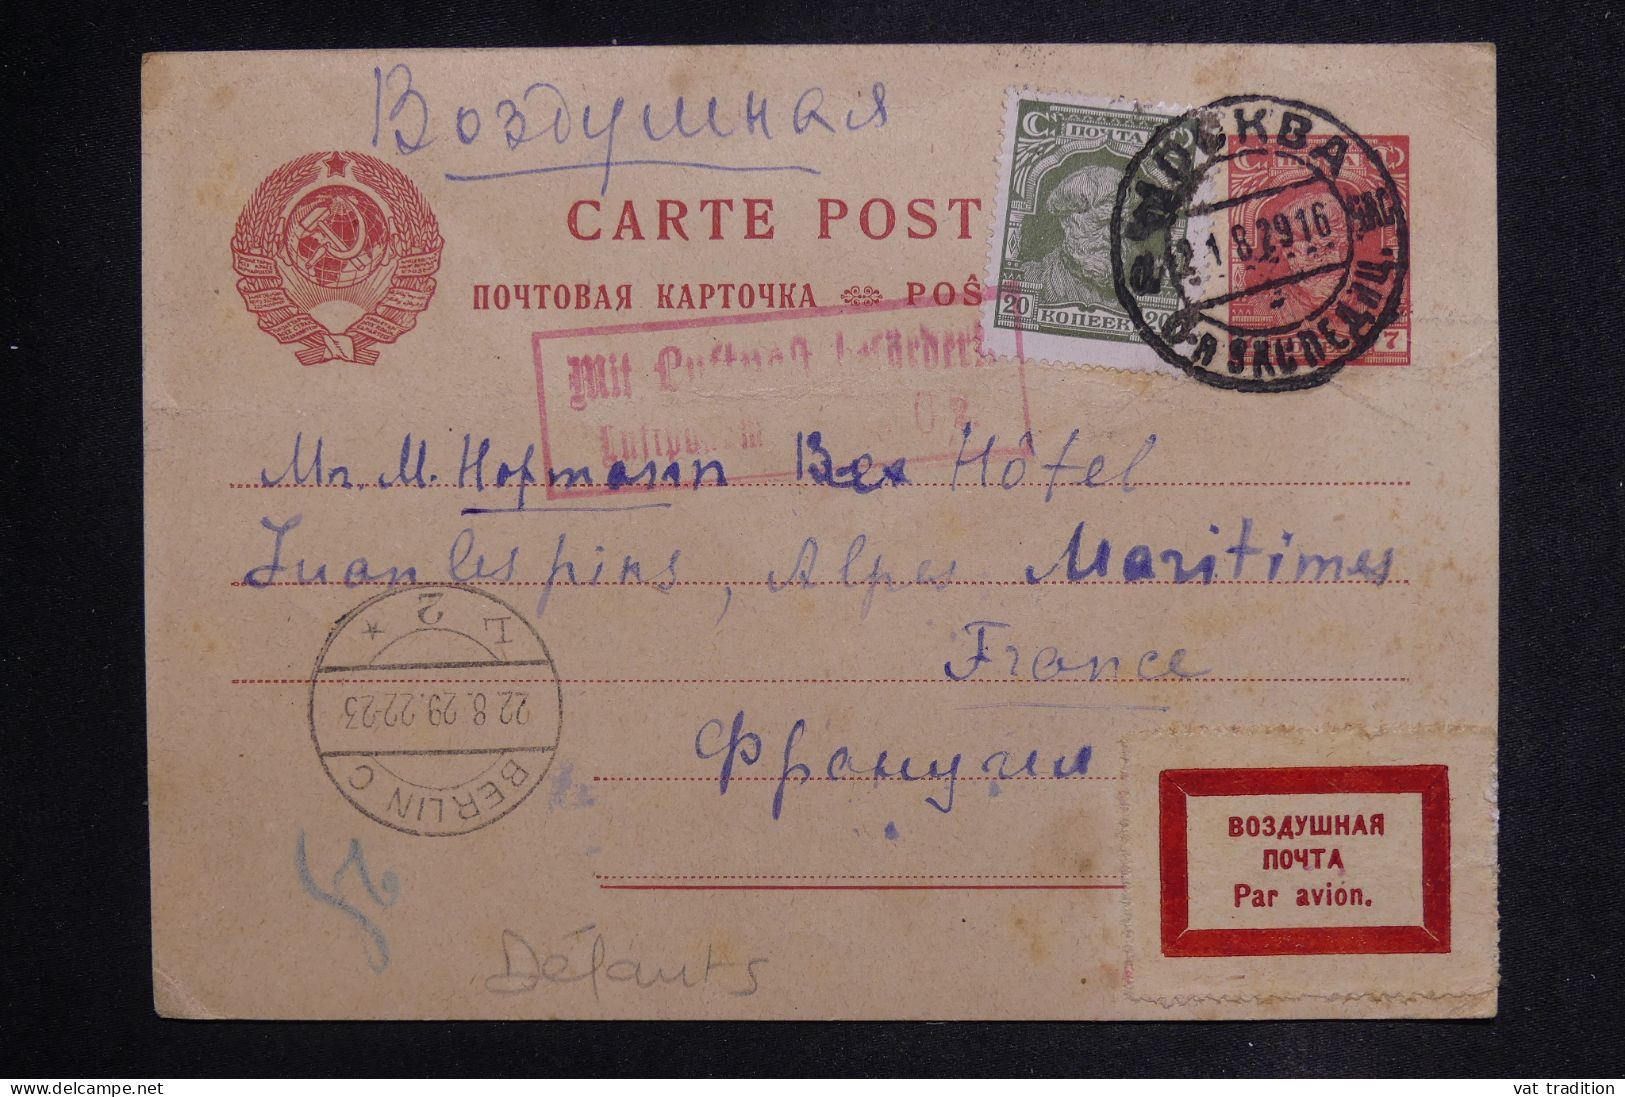 Воздушная
CARTE POST
ПОЧТОВАЯ КАРТОЧКА POŜ
ПОЧТА
20 КОПЕЕК 20
7
МОСКВА
1 8.29 16
ЭКСПЕДИЦ.
Mit Luftpost befördert
Mr. M. Hofmann Hôtel
Juan les pins, Alpes Maritimes
France
Франция
L 2
22.8.29.22-23
BERLIN C
ВОЗДУШНАЯ
ПОЧТА
Par avión.
Défauts
vat tradition